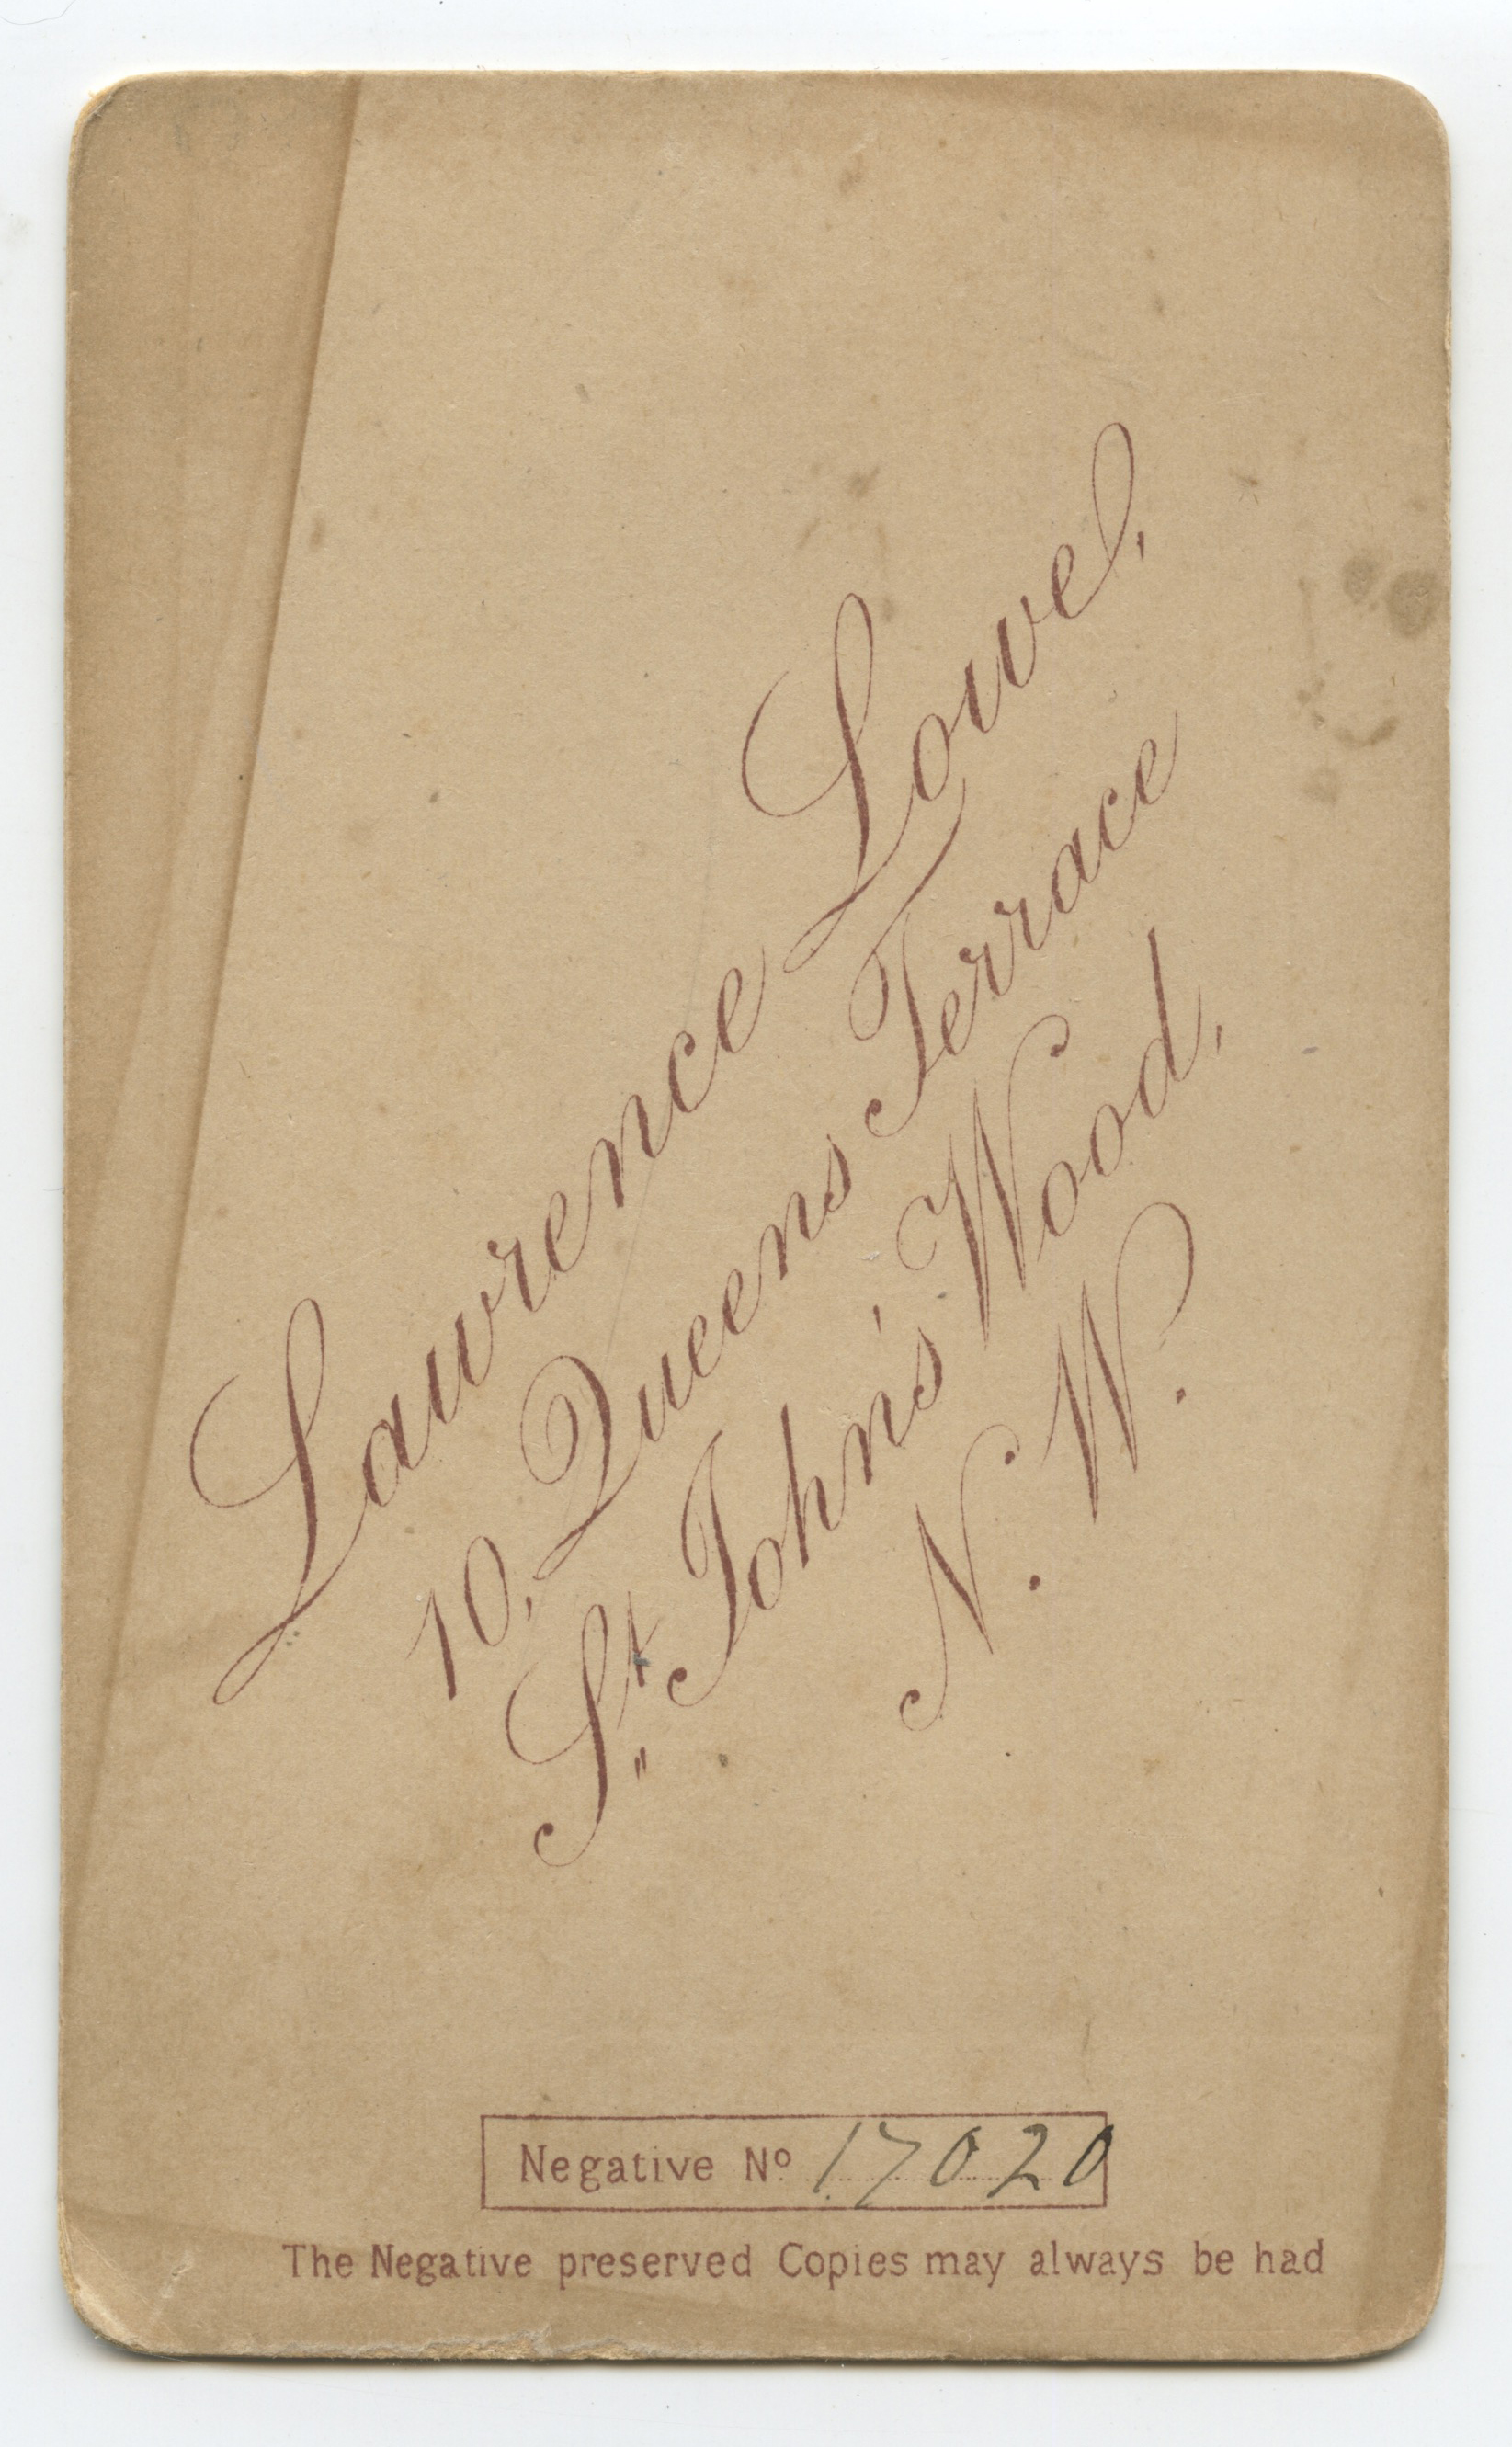 Lawrence Lowe,
10, Queens Terrace
St. John's Wood,
N. W.
Negative No 17020
The Negative preserved Copies may always be had